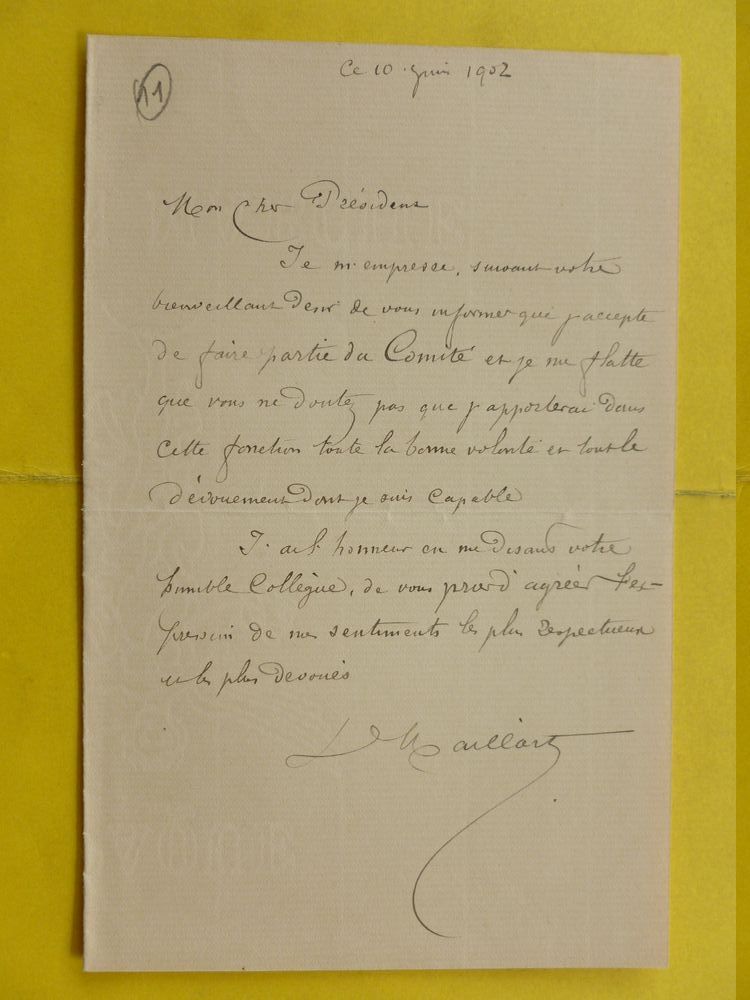 11
Ce 10 juin 1902
Mon cher Président
Je m'empresse, suivant votre
bienveillant desir de vous informer que j'accepte
de faire partie du Comité et je me flatte
que vous ne doutez pas que j'apporterai dans
cette fonction toute la bonne volonté et tout le
dévouement dont je suis capable
J'ai l'honneur en me disant votre
humble Collègue, de vous prier d'agréer l'ex-
pression de mes sentiments les plus respectueux
et les plus devoués
D Maillart